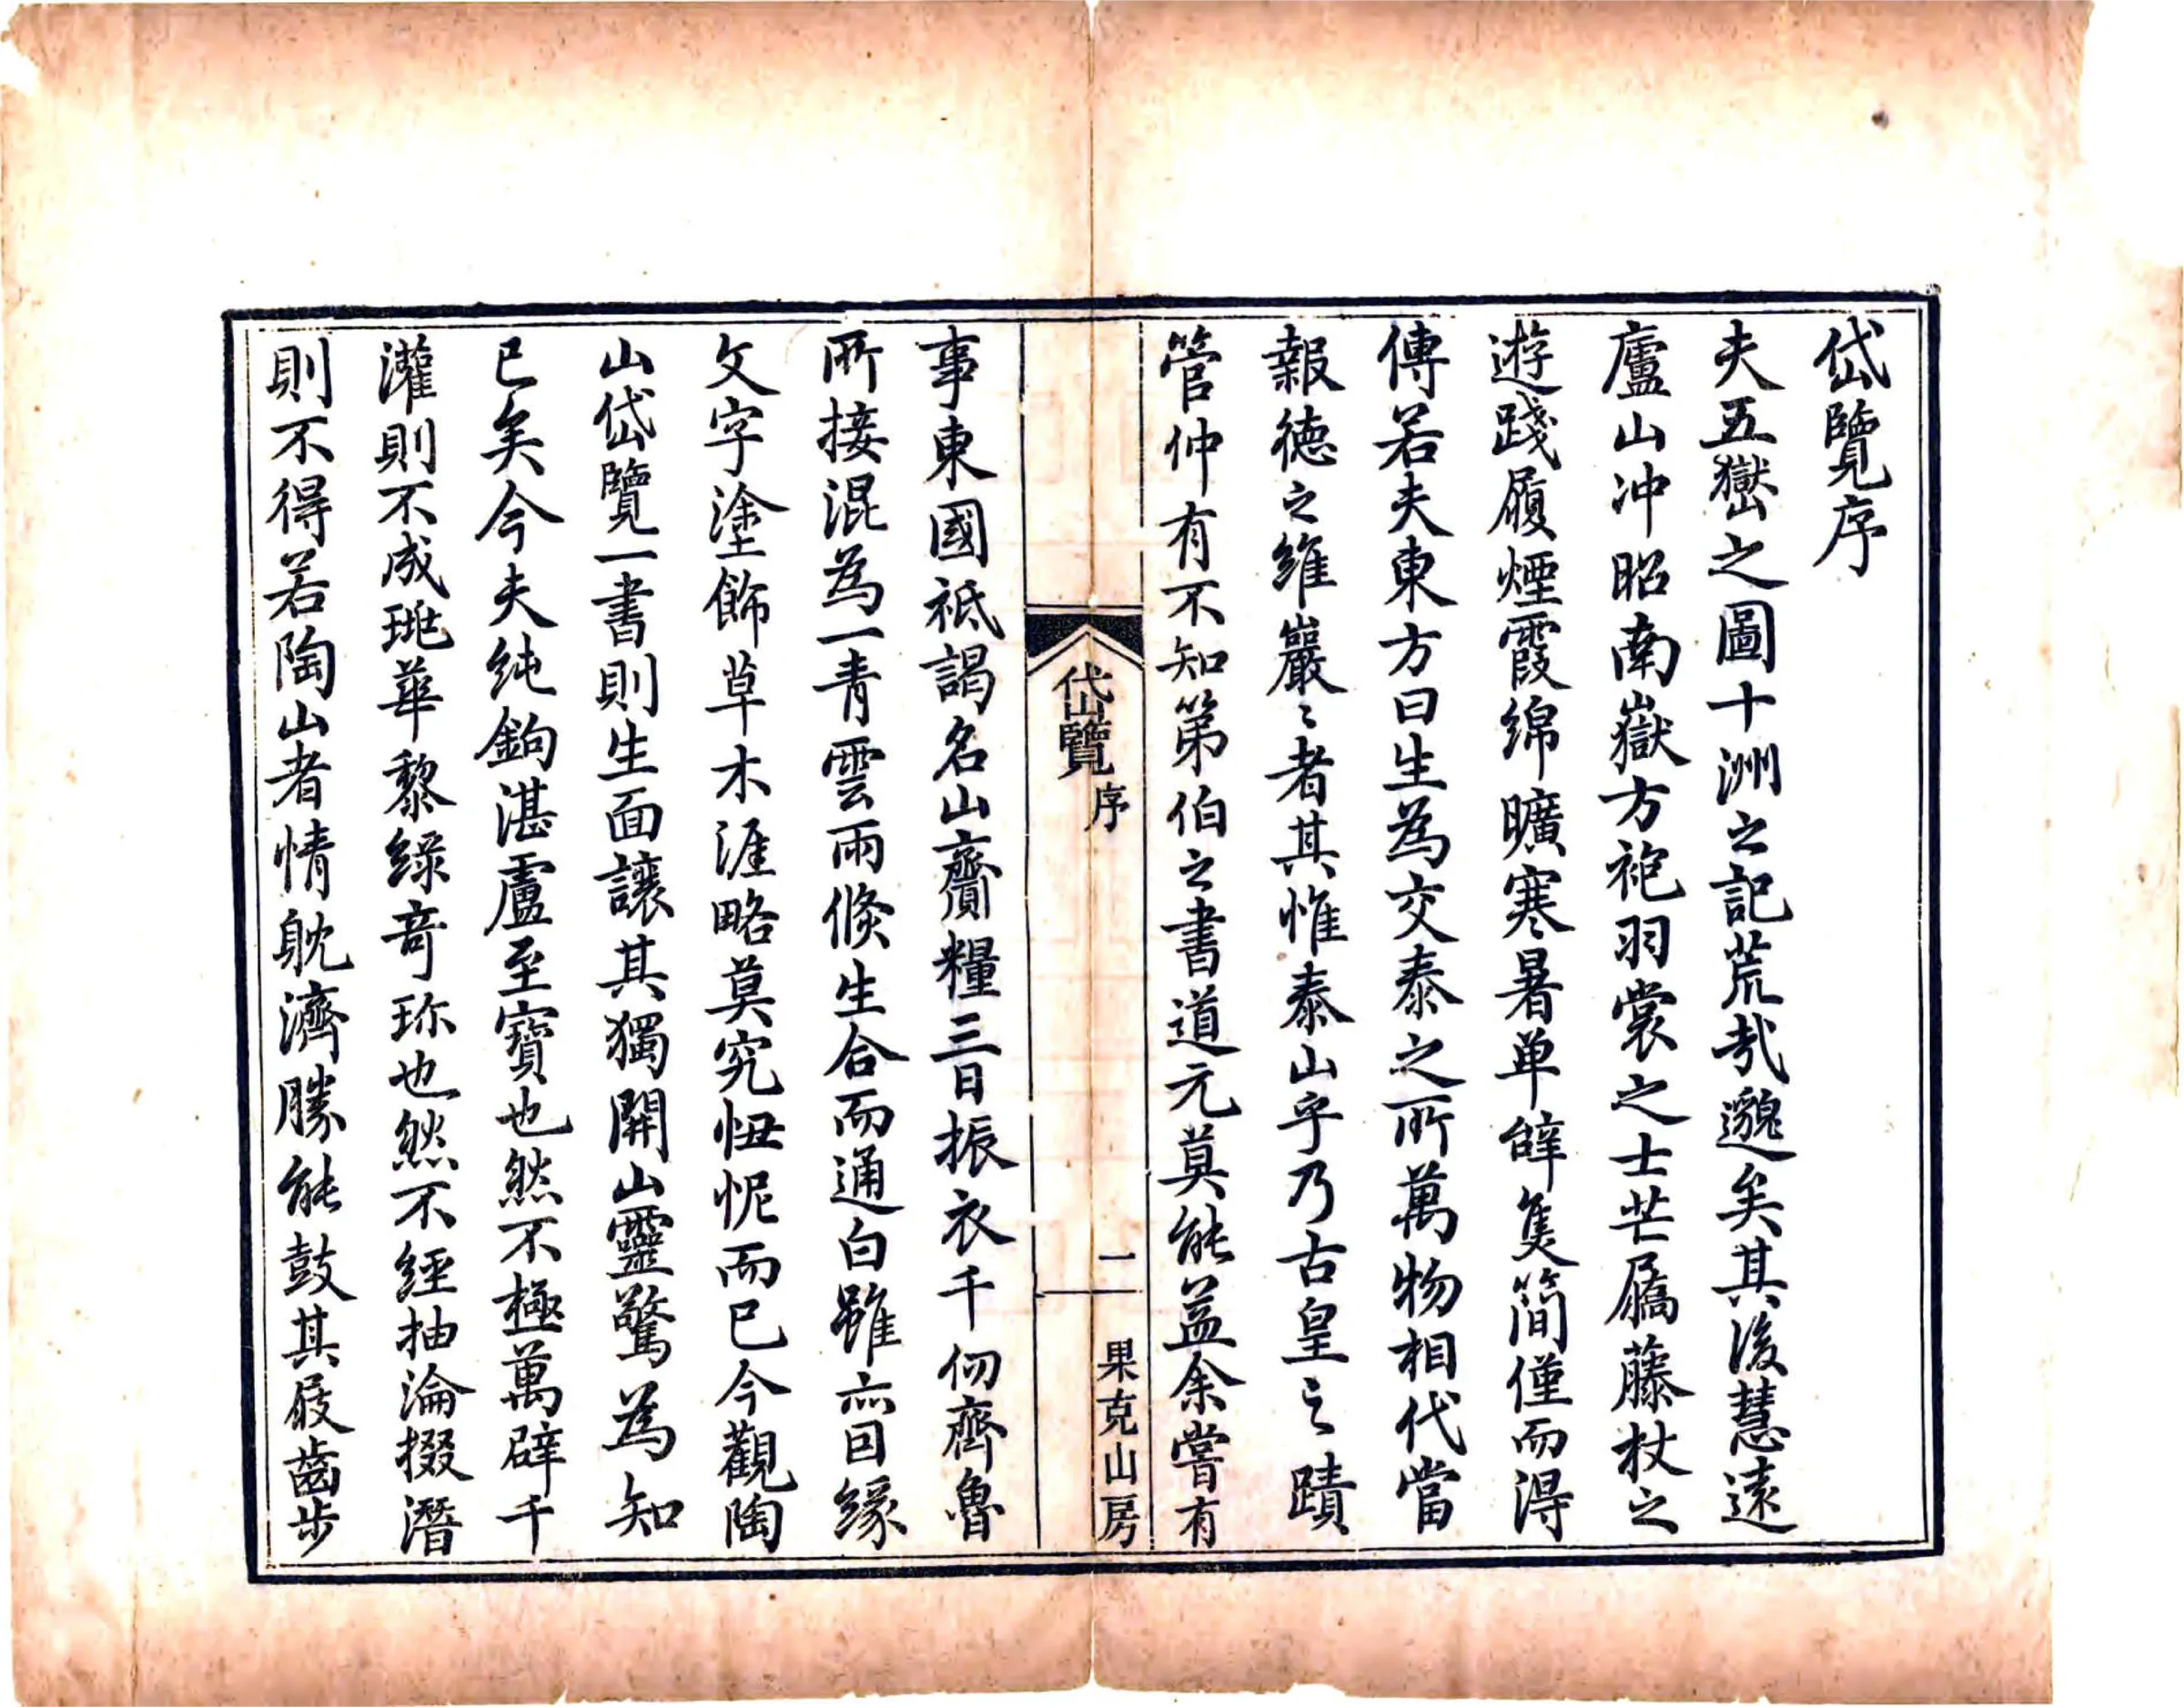 岱覽序
夫五嶽之圖十洲之記荒哉邈矣其後慧遠
廬山沖昭南嶽方袍羽裳之士芒屩藤杖之
遊踐履煙霞綿曠寒暑单辞隻簡僅而淂
傳若夫東方曰生為交泰之所萬物相代當
報德之維巖〻者其惟泰山乎乃古皇之蹟
管仲有不知第伯之書道元莫能益余嘗有
岱覽 序 一 果克山房
事東國祇謁名山齎糧三日振衣千仞齊魯
所接混為一青雲雨倐生合而通白雖亦因緣
文字塗飾草木涯略莫究忸怩而已今觀陶
山岱覽一書則生面讓其獨開山靈驚為知
已矣今夫纯鉤湛盧至寶也然不極萬辟千
灌則不成珧華黎綠竒珎也然不經抽淪掇潛
則不得若陶山者情躭濟勝能鼓其屐齒步